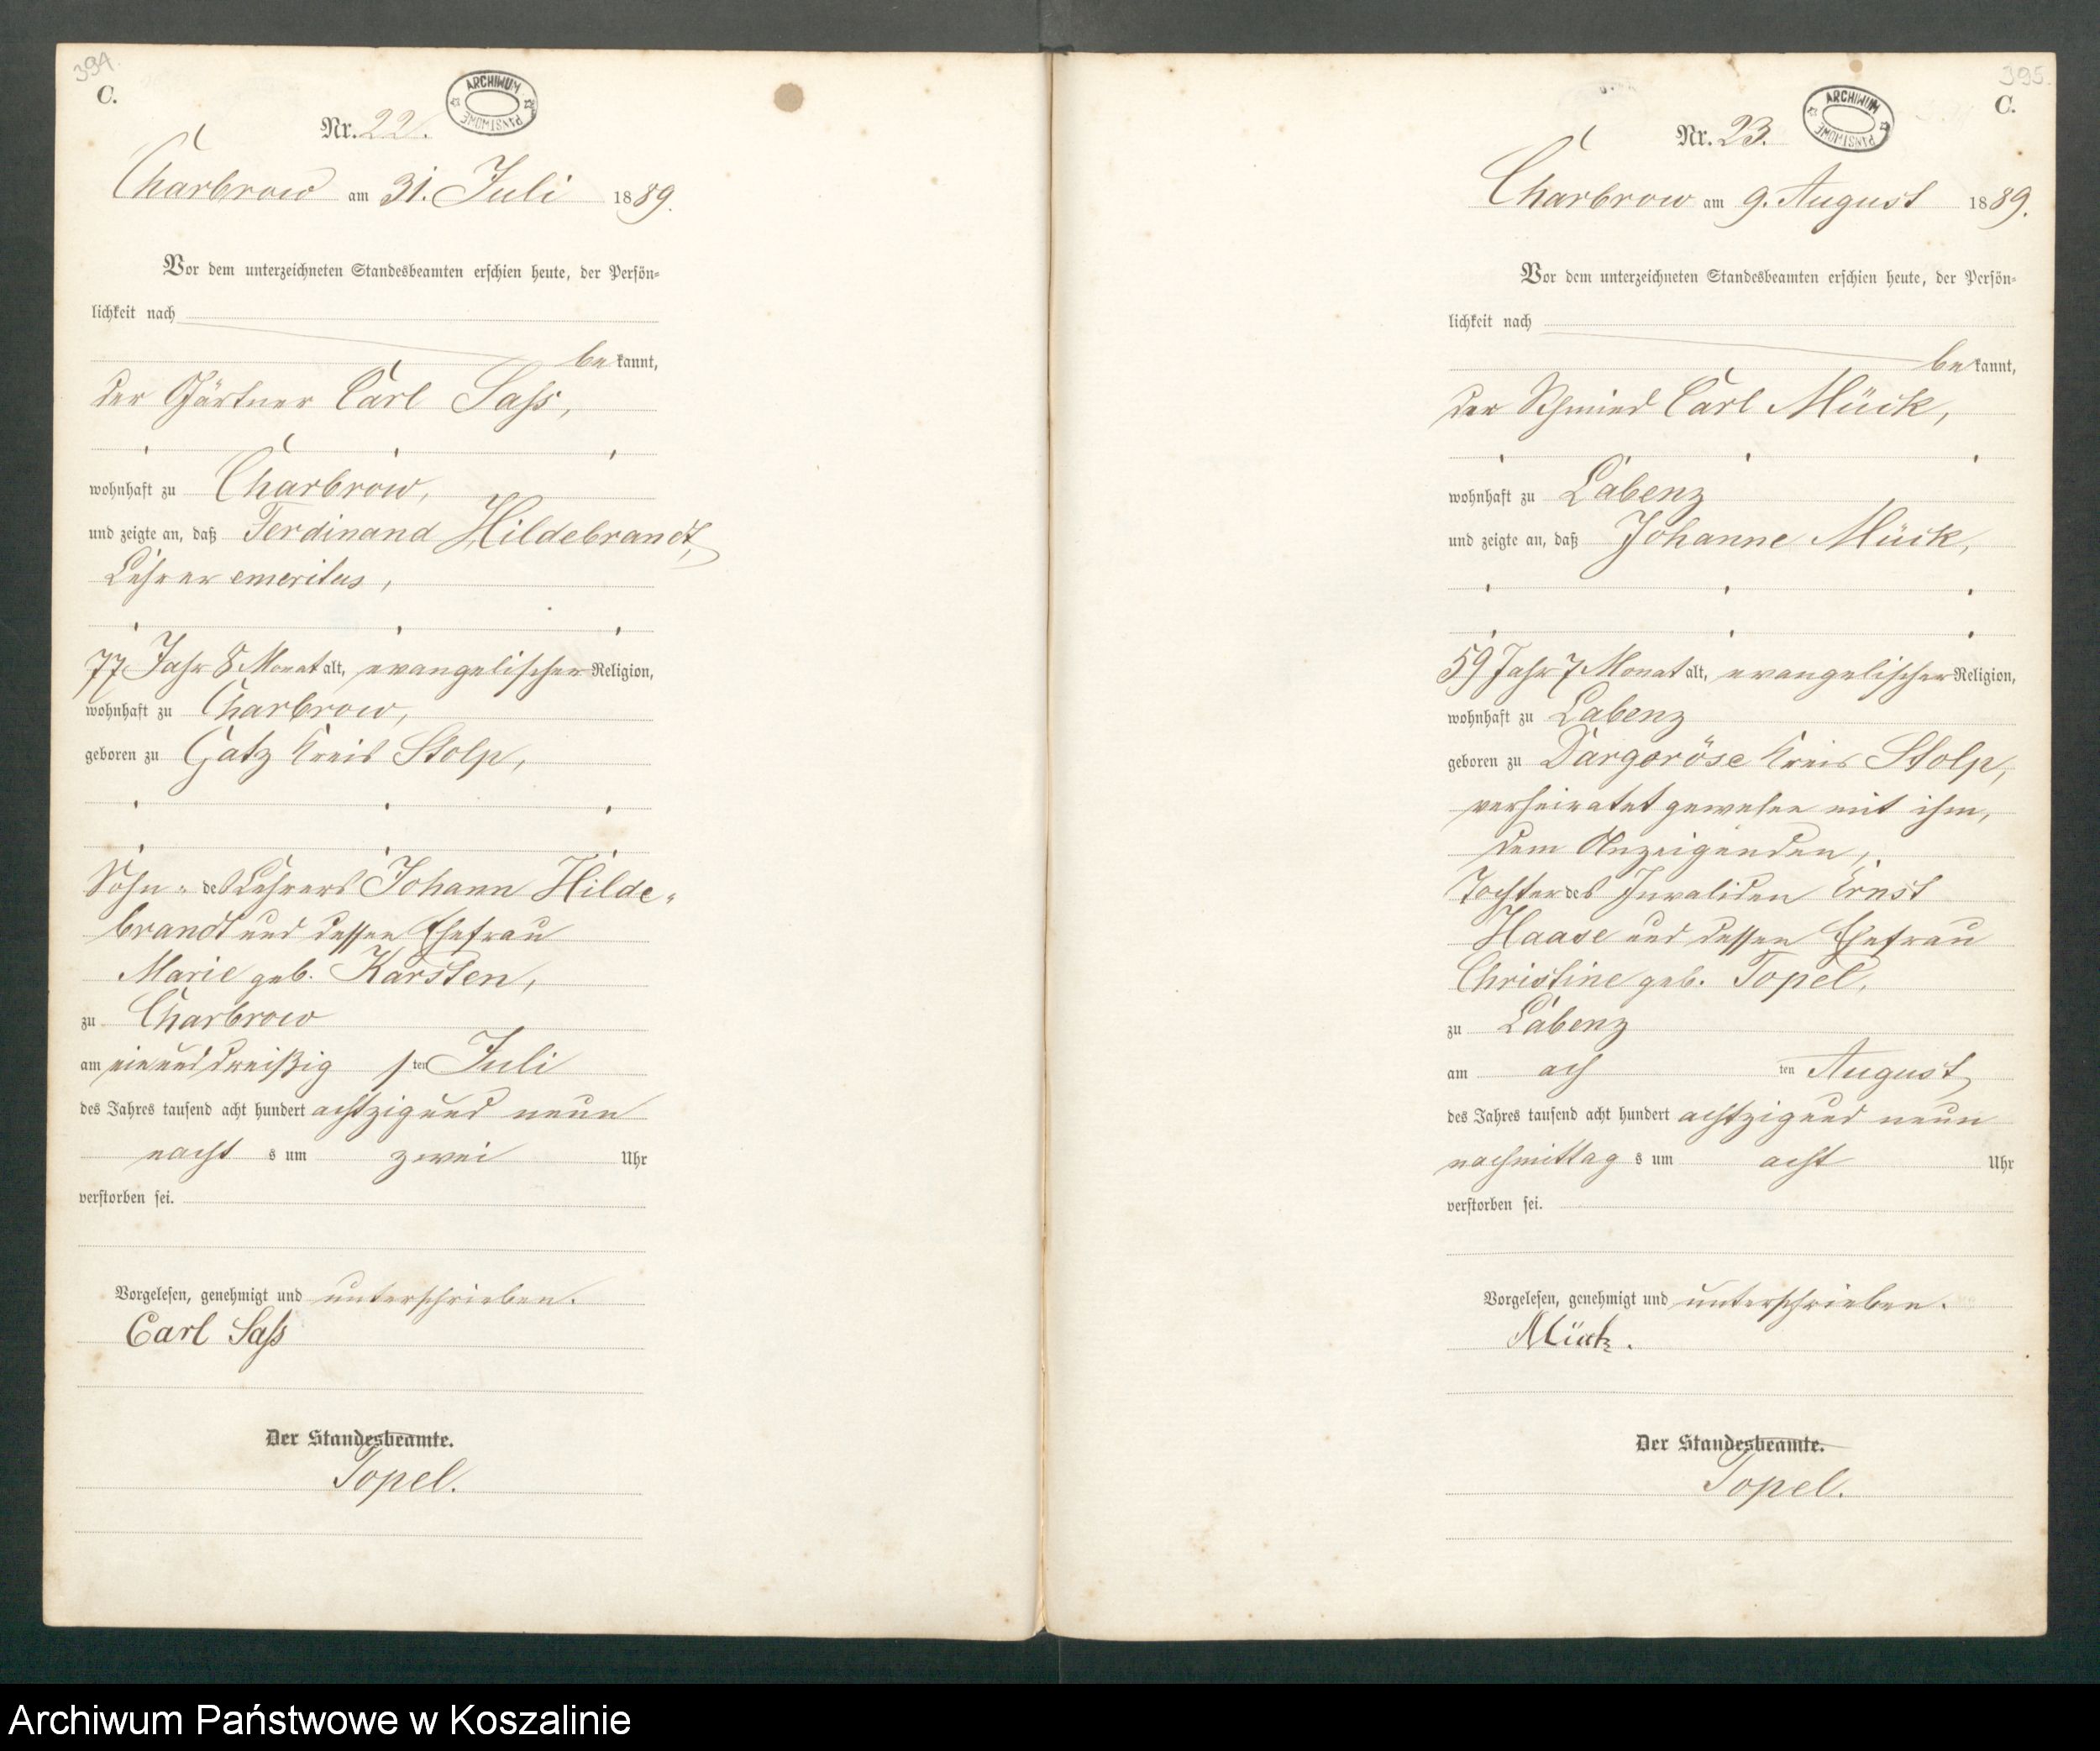 394.
C.
ARCHIWUM PAŃSTWOWE
Nr. 22.
Charbrow am 31. Juli 1889.
Vor dem unterzeichneten Standesbeamten erschien heute, der Persön-
lichkeit nach
bekannt,
der Gärtner Carl Sass,
wohnhaft zu Charbrow,
und zeigte an, daß Ferdinand Hildebrandt,
Lehrer emeritus,
77 Jahr 8 Monat alt, evangelischer Religion,
wohnhaft zu Charbrow,
geboren zu Gatz Kreis Stolp,
Sohn des Lehrers Johann Hilde-
brandt und dessen Ehefrau
Marie geb. Karsten,
zu Charbrow
am ein und dreißigsten Juli
des Jahres tausend acht hundert achtzig und neun
nachts um zwei Uhr
verstorben sei.
Vorgelesen, genehmigt und unterschrieben.
Carl Sass
Der Standesbeamte.
Topel.
395.
C.
ARCHIWUM PAŃSTWOWE
Nr. 23.
Charbrow am 9. August 1889.
Vor dem unterzeichneten Standesbeamten erschien heute, der Persön-
lichkeit nach
bekannt,
der Schmied Carl Mück,
wohnhaft zu Labenz
und zeigte an, daß Johanne Mück,
59 Jahr 7 Monat alt, evangelischer Religion,
wohnhaft zu Labenz
geboren zu Dargoröse Kreis Stolp,
verheiratet gewesen mit ihm,
dem Anzeigenden,
Tochter des Invaliden Ernst
Haase und dessen Ehefrau
Christine geb. Topel,
zu Labenz
am achten August
des Jahres tausend acht hundert achtzig und neun
nachmittags um acht Uhr
verstorben sei.
Vorgelesen, genehmigt und unterschrieben.
Mück.
Der Standesbeamte.
Topel.
Archiwum Państwowe w Koszalinie